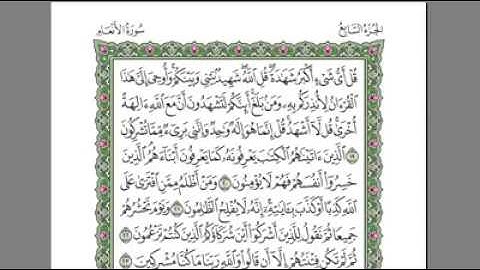 سُورَةُ الأَنْعَامِ الجُزْءُ السَّابِعُ
قُلْ أَىُّ شَىْءٍ أَكْبَرُ شَهَٰدَةً قُلِ ٱللَّهُ شَهِيدٌۢ بَيْنِى وَبَيْنَكُمْ وَأُوحِىَ إِلَىَّ هَٰذَا
ٱلْقُرْءَانُ لِأُنذِرَكُم بِهِۦ وَمَنۢ بَلَغَ أَئِنَّكُمْ لَتَشْهَدُونَ أَنَّ مَعَ ٱللَّهِ ءَالِهَةً
أُخْرَىٰ قُل لَّآ أَشْهَدُ قُلْ إِنَّمَا هُوَ إِلَٰهٌ وَٰحِدٌ وَإِنَّنِى بَرِىٓءٌ مِّمَّا تُشْرِكُونَ
١٩ ٱلَّذِينَ ءَاتَيْنَٰهُمُ ٱلْكِتَٰبَ يَعْرِفُونَهُۥ كَمَا يَعْرِفُونَ أَبْنَآءَهُمُ ٱلَّذِينَ
خَسِرُوٓا۟ أَنفُسَهُمْ فَهُمْ لَا يُؤْمِنُونَ ٢٠ وَمَنْ أَظْلَمُ مِمَّنِ ٱفْتَرَىٰ عَلَى
ٱللَّهِ كَذِبًا أَوْ كَذَّبَ بِـَٔايَٰتِهِۦٓ إِنَّهُۥ لَا يُفْلِحُ ٱلظَّٰلِمُونَ ٢١ وَيَوْمَ نَحْشُرُهُمْ
جَمِيعًا ثُمَّ نَقُولُ لِلَّذِينَ أَشْرَكُوٓا۟ أَيْنَ شُرَكَآؤُكُمُ ٱلَّذِينَ كُنتُمْ تَزْعُمُونَ
٢٢ ثُمَّ لَمْ تَكُن فِتْنَتُهُمْ إِلَّآ أَن قَالُوا۟ وَٱللَّهِ رَبِّنَا مَا كُنَّا مُشْرِكِينَ ٢٣